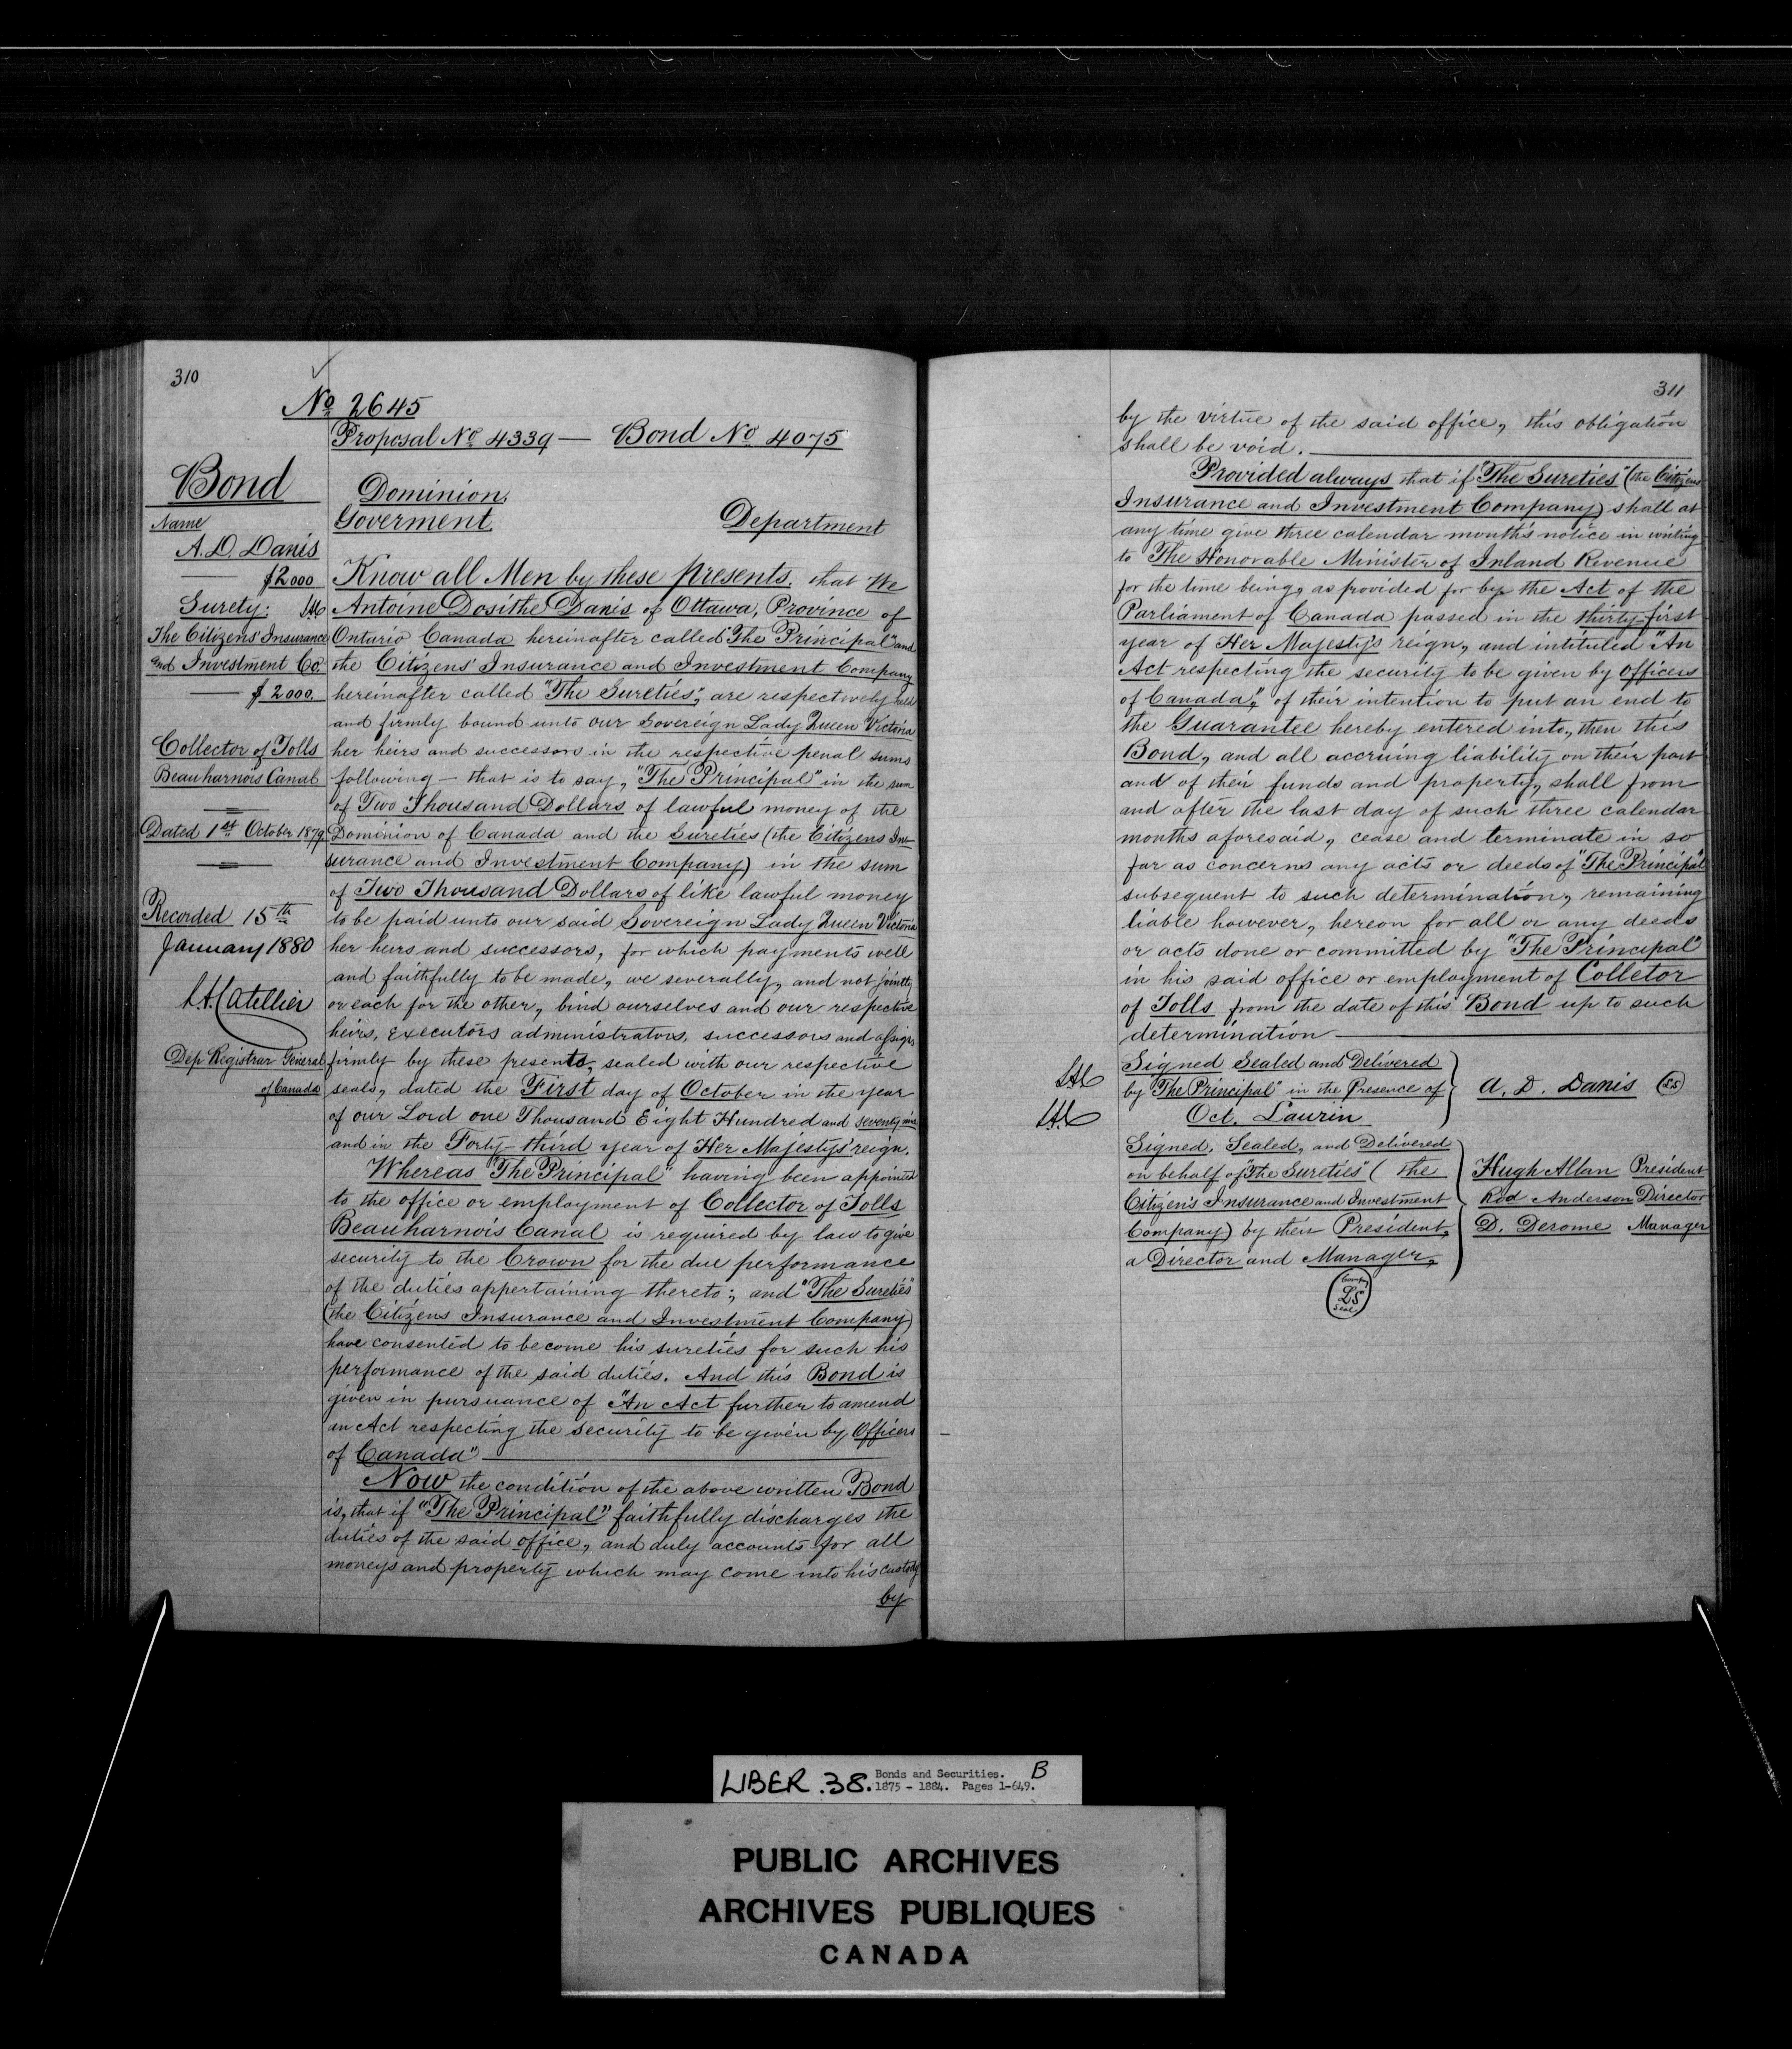 310
No 2645
Proposal No 4339 — Bond No 4075
Bond
Name
A. D. Danis
$2000
Surety:
The Citizens' Insurance
and Investment Co.
$2000
Collector of Tolls
Beauharnois Canal
Dated 1st October 1879
Recorded 15th
January 1880
Dep Registrar General
of Canada
Dominion
Goverment Department
Know all Men by these presents, that We
Antoine Dosithe Danis of Ottawa, Province of
Ontario Canada hereinafter called "The Principal" and
the Citizens' Insurance and Investment Company
hereinafter called "The Sureties", are respectively held
and firmly bound unto our Sovereign Lady Queen Victoria
her heirs and successors in the respective penal sums
following — that is to say, "The Principal" in the sum
of Two Thousand Dollars of lawful money of the
Dominion of Canada and the Sureties (the Citizens In-
surance and Investment Company) in the sum
of Two Thousand Dollars of like lawful money
to be paid unto our said Sovereign Lady Queen Victoria
her heirs and successors, for which payments well
and faithfully to be made, we severally, and not jointly
or each for the other, bind ourselves and our respective
heirs, executors administrators, successors and assigns
firmly by these presents, sealed with our respective
seals, dated the First day of October in the year
of our Lord one Thousand Eight Hundred and seventy nine
and in the Forty-third year of Her Majestys' reign.
Whereas "The Principal" having been appointed
to the office or employment of Collector of Tolls
Beauharnois Canal is required by law to give
security to the Crown for the due performance
of the duties appertaining thereto; and "The Sureties"
(the Citizens Insurance and Investment Company)
have consented to become his sureties for such his
performance of the said duties. And this Bond is
given in pursuance of "An Act further to amend
an Act respecting the security to be given by Officers
of Canada"
Now the condition of the above written Bond
is, that if "The Principal" faithfully discharges the
duties of the said office, and duly accounts for all
moneys and property which may come into his custody
by
311
by the virtue of the said office, this obligation
shall be void.
Provided always that if "The Sureties" (the Citizens
Insurance and Investment Company) shall at
any time give three calendar month's notice in writing
to The Honorable Minister of Inland Revenue
for the time being, as provided for by the Act of the
Parliament of Canada passed in the thirty-first
year of Her Majesty's reign, and intituled "An
Act respecting the security to be given by Officers
of Canada", of their intention to put an end to
the Guarantee hereby entered into, then this
Bond, and all accruing liability on their part
and of their funds and property, shall from
and after the last day of such three calendar
months aforesaid, cease and terminate in so
far as concerns any acts or deeds of "The Principal"
subsequent to such determination, remaining
liable however, hereon for all or any deeds
or acts done or committed by "The Principal"
in his said office or employment of Colletor
of Tolls from the date of this Bond up to such
determination
Signed Sealed and Delivered
by "The Principal" in the Presence of A. D. Danis LS
Oct. Laurin
Signed, Sealed, and Delivered
on behalf of "The Sureties" (the Hugh Allan President
Citizen's Insurance and Investment Rod Anderson Director
Company) by their President, D. Derome Manager
a Director and Manager,
LS
Seal
LIBER.38. Bonds and Securities. B
1875 - 1884. Pages 1-649.
PUBLIC ARCHIVES
ARCHIVES PUBLIQUES
CANADA